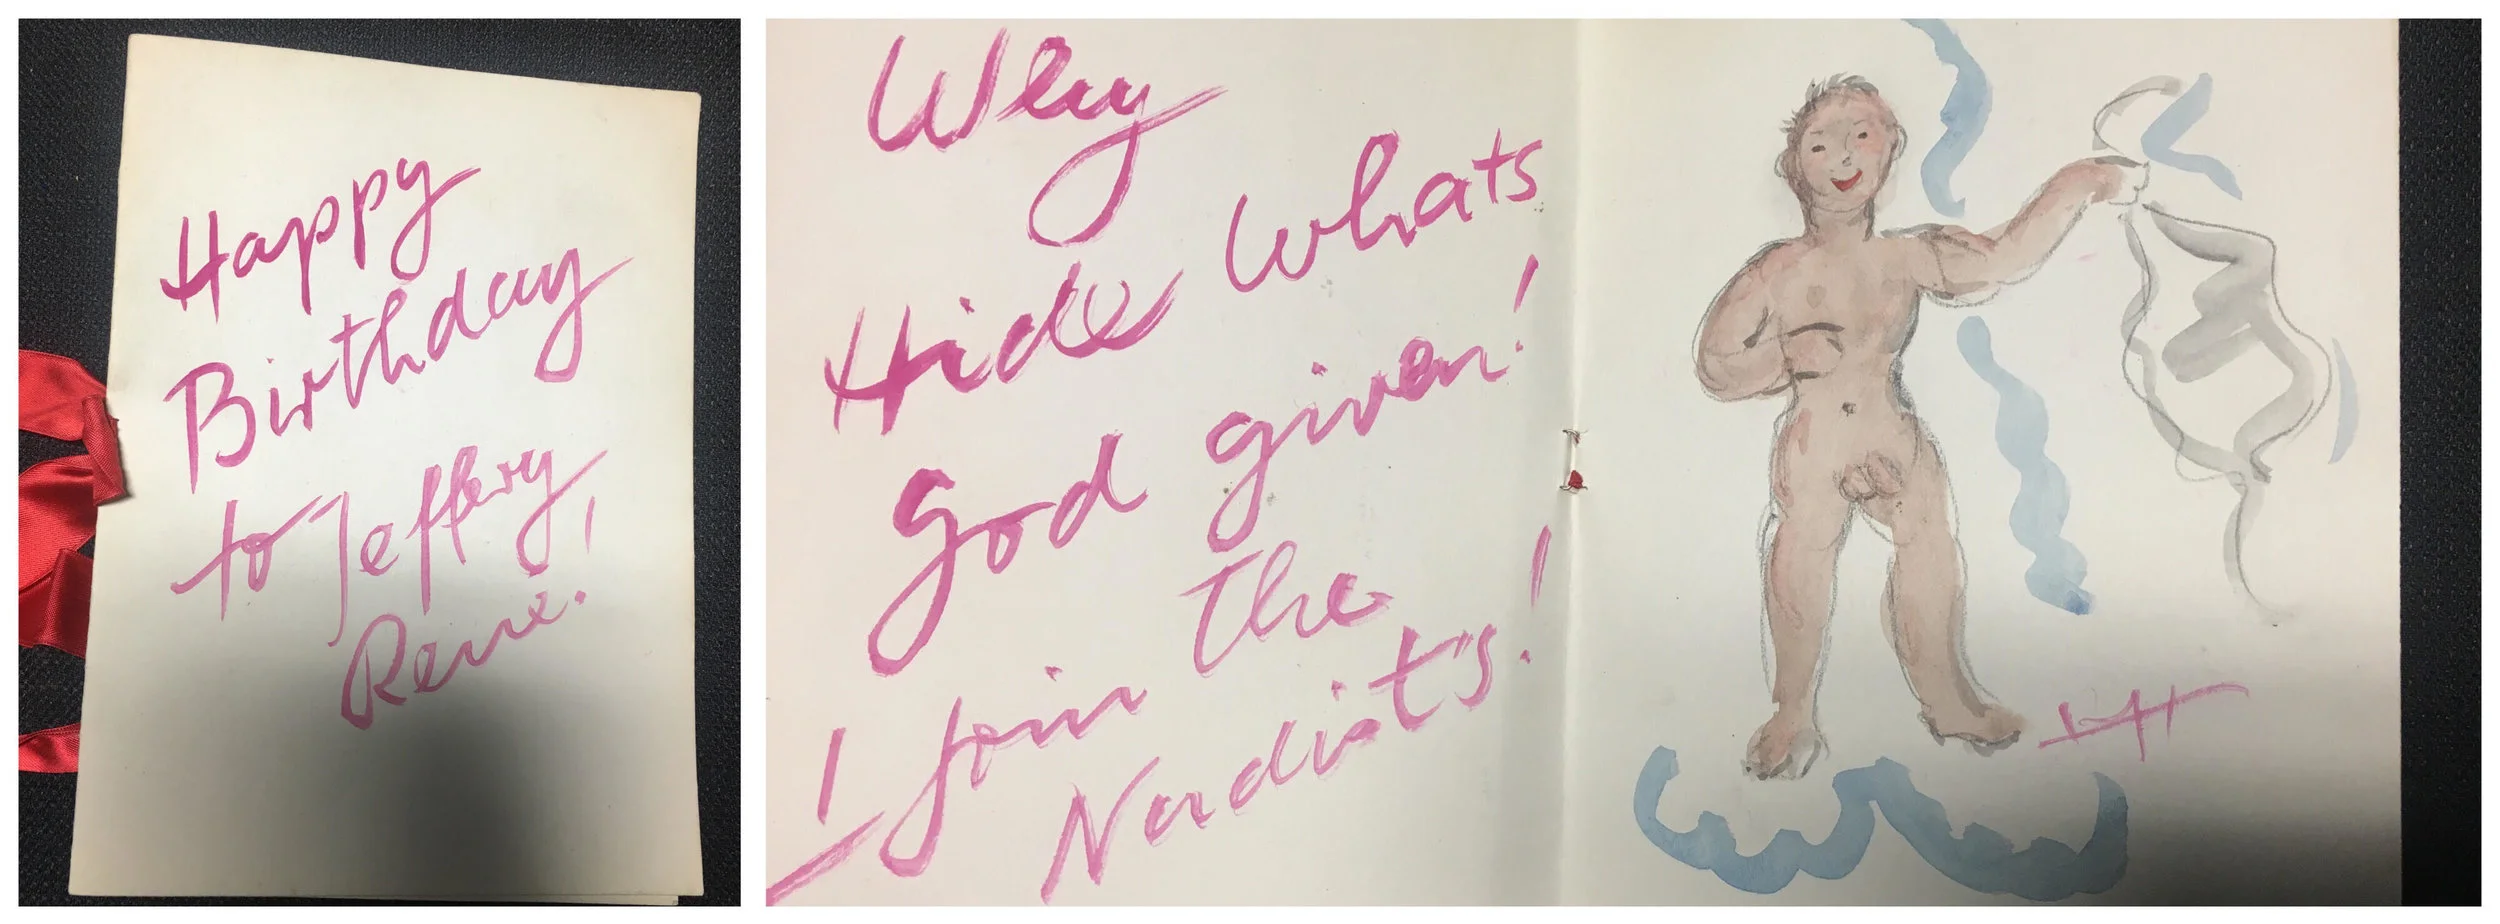 Happy
Birthday
to Jeffery
Rene!
Why
Hide Whats
God given!
I Join the
Nudist's!